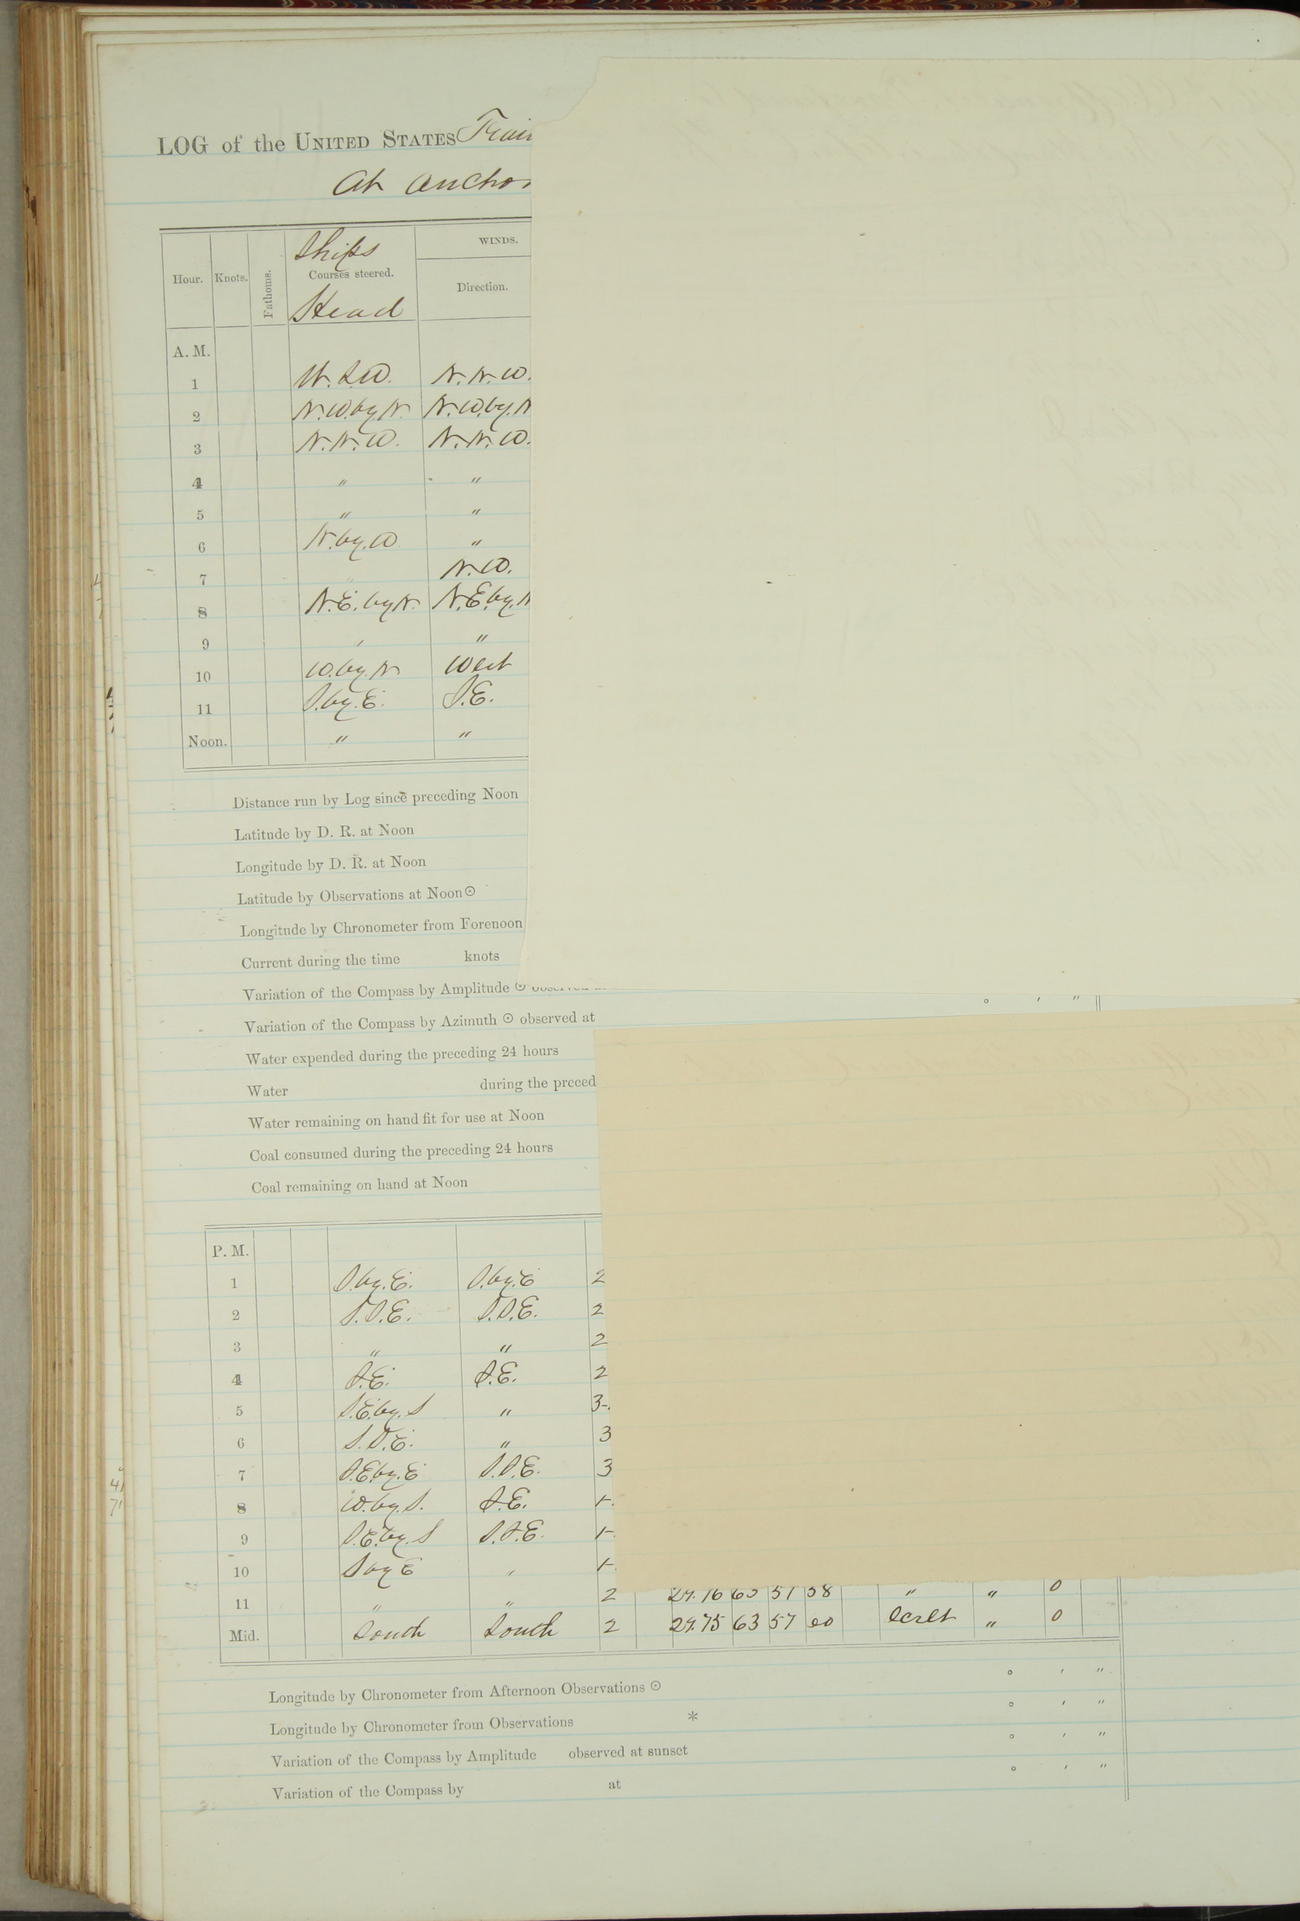 LOG of the UNITED STATES
At anchor
Ships
WINDS.
Hour. Knots. Fathoms. Courses steered. Direction.
Head
A. M.
1 W.S.W. N.N.W.
2 N.W.by.N. N.W.by.N
3 N.N.W. N.N.W.
4 " "
5 " "
6 N.by.W "
7 N.W.
8 N.E.by N. N.E.by.N
9 " "
10 W.by.N West
11 S.by.E. S.E.
Noon. " "
Distance run by Log since preceding Noon
Latitude by D. R. at Noon
Longitude by D. R. at Noon
Latitude by Observations at Noon ☉
Longitude by Chronometer from Forenoon
Current during the time knots
Variation of the Compass by Amplitude ☉
° ' "
Variation of the Compass by Azimuth ☉ observed at
Water expended during the preceding 24 hours
Water during the preced
Water remaining on hand fit for use at Noon
Coal consumed during the preceding 24 hours
Coal remaining on hand at Noon
P. M.
1 S.by.E. S.by.E 2
2 S.S.E. S.S.E. 2
3 " " 2
4 S.E. S.E. 2
5 S.E.by.S " 3-
6 S.S.E. " 3
7 S.E.by.E S.S.E. 3
8 W.by.S. S.E. 1-
9 S.E.by.S S.S.E. 1-
10 S by E " 1-
11 " " 2 29.76 63 57 58 " " 0
Mid. South South 2 29.75 63 57 60 " 0
Longitude by Chronometer from Afternoon Observations ☉ ° ' "
Longitude by Chronometer from Observations * ° ' "
Variation of the Compass by Amplitude observed at sunset ° ' "
Variation of the Compass by at ° ' "